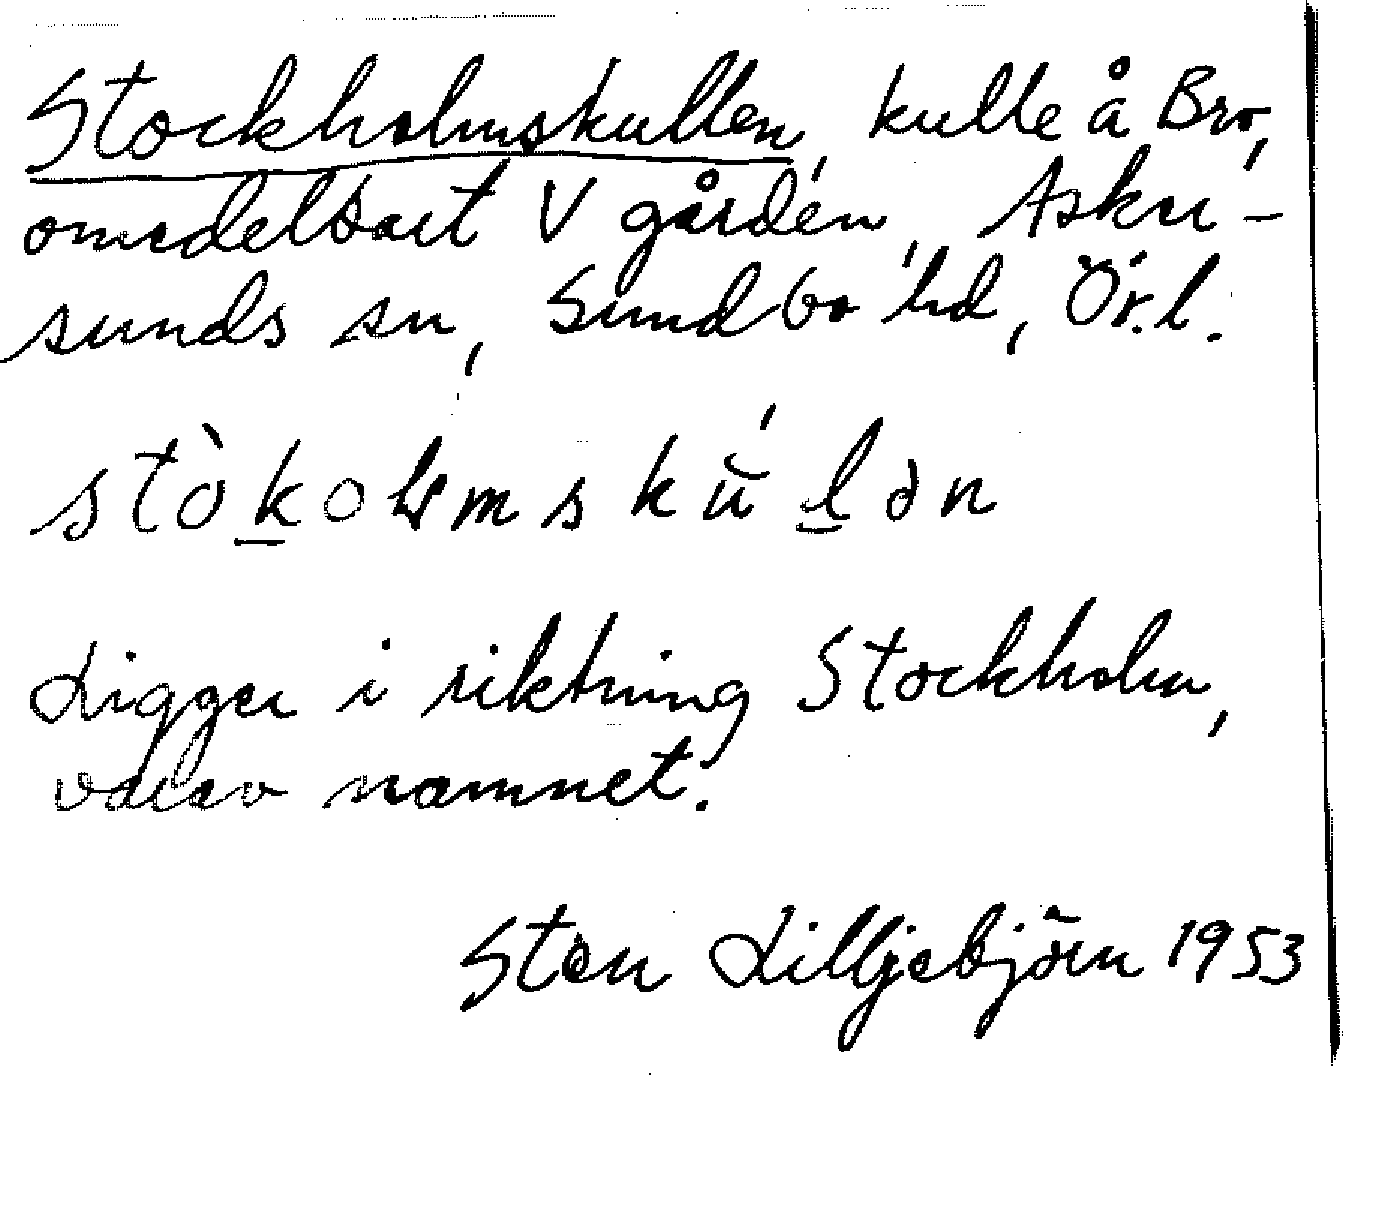 Stockholmskullen, kulle å Bro,
omedelbart V gården, Asker-
sunds sn, Sundbo hd, Ör.l.
stòkolmskŭ́lən
Ligger i riktning Stockholm,
varav namnet.
Sten Lilljebjörn 1953